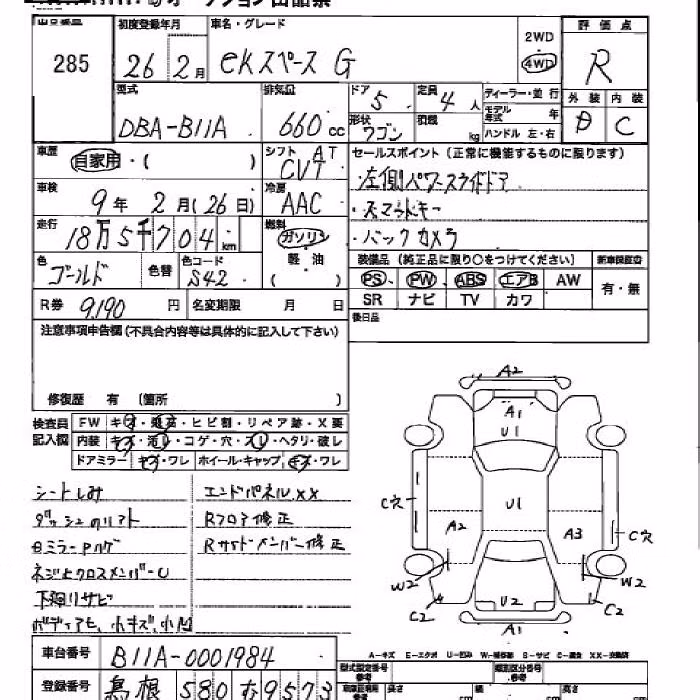 285
初度登録年月
車名・グレード
2WD
4WD
評価点
26 2月
eKスペース G
R
型式
排気量
ドア 5
定員 4人
ディーラー・並行
モデル年式 年
外装 内装
DBA-B11A
660cc
形状 ワゴン
積載 kg
ハンドル 左・右
C
車歴
自家用・( )
シフト AT
CVT
セールスポイント (正常に機能するものに限ります)
・左側パワースライドドア
車検
9年 2月(26日)
冷房
AAC
・スマートキー
走行
18万5千704km
燃料
ガソリン
軽油
( )
・バックカメラ
装備品 (純正品に限り○をつけてください)
新車保証書
色
ゴールド
色替
色コード
S42
PS PW ABS エアB AW
有・無
SR ナビ TV カワ
R券 9,190円
名変期限 月 日
後日品
注意事項申告欄(不具合内容等は具体的に記入して下さい)
修復歴 有 (箇所 )
検査員記入欄
FW キズ・飛石・ヒビ割・リペア跡・X要
内装 キズ・汚レ・コゲ・穴・スレ・ヘタリ・破レ
ドアミラー キズ・ワレ
ホイール・キャップ キズ・ワレ
シートしみ
エンドパネルXX
Rフロア修正
Rサイドメンバー修正
下廻りサビ
A2
A1
U1
Cス
U1
A2
A3
Cス
W2
W2
C2
U2
C2
A1
A-キズ E-エクボ U-凹み W-補修跡 S-サビ C-腐食 XX-交換済
車台番号 B11A-0001984
型式指定番号
類別区分番号
登録番号 島根 580 9573